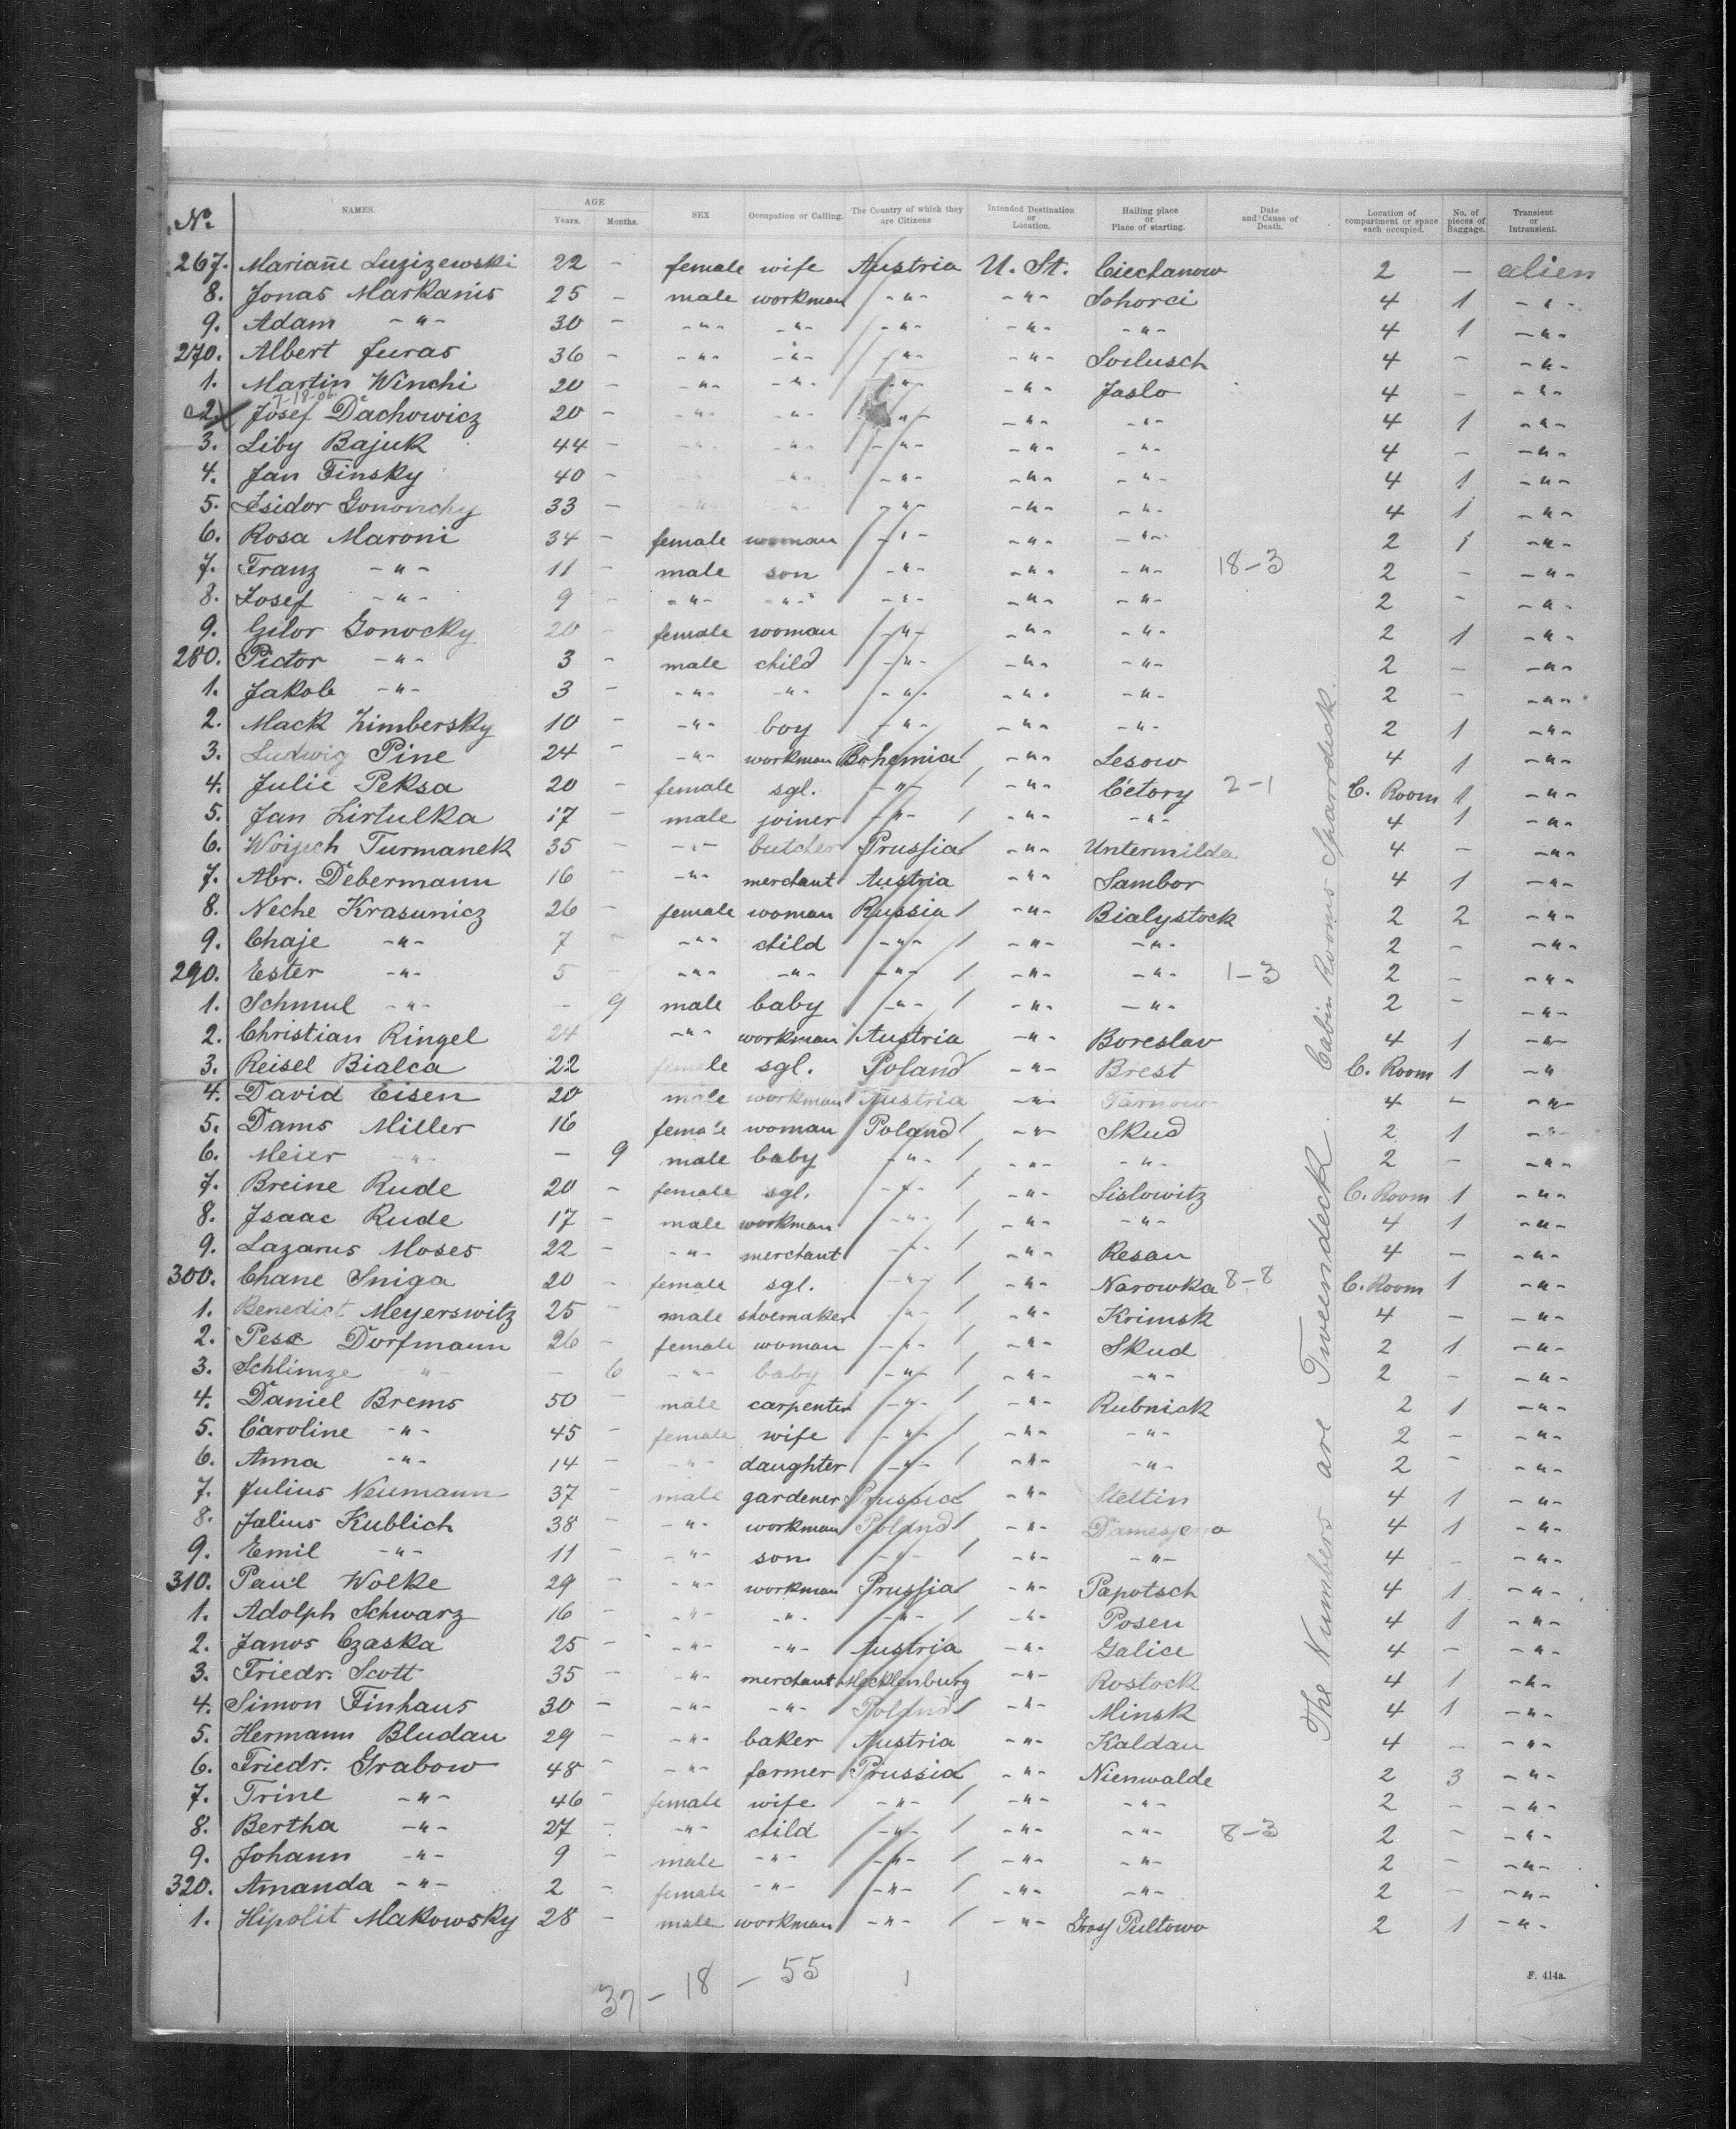 No. NAMES. AGE Years. Months. SEX Occupation or Calling. The Country of which they are Citizens Intended Destination or Location. Hailing place or Place of starting. Date and Cause of Death. Location of compartment or space each occupied. No. of pieces of Baggage. Transient or Intransient.
267. Mariañe Luzizewski 22 - female wife Austria U. St. Ciechanow 2 - alien
8. Jonas Markanis 25 - male workman -"- -"- Sohorci 4 1 -"-
9. Adam -"- 30 - -"- -"- -"- -"- -"- 4 1 -"-
270. Albert Juras 36 - -"- -"- -"- -"- Soilusch 4 - -"-
1. Martin Winchi 20 - -"- -"- -"- -"- Jaslo 4 - -"-
7-18-06
2. Josef Dachowicz 20 - -"- -"- -"- -"- -"- 4 1 -"-
3. Liby Bajuk 44 - -"- -"- -"- -"- -"- 4 - -"-
4. Jan Finsky 40 - -"- -"- -"- -"- 4 1 -"-
5. Isidor Gononchy 33 - -"- -"- -"- -"- -"- 4 1 -"-
6. Rosa Maroni 34 - female woman -"- -"- -"- 2 1 -"-
7. Franz -"- 11 - male son -"- -"- -"- 18-3 2 - -"-
8. Josef -"- 9 - -"- -"- -"- -"- -"- 2 - -"-
9. Gilor Gonocky 20 - female woman -"- -"- -"- 2 1 -"-
280. Pictor -"- 3 - male child -"- -"- -"- 2 - -"-
1. Jakob -"- 3 - -"- -"- -"- -"- -"- 2 - -"-
2. Mack Zimbersky 10 - -"- boy -"- -"- -"- 2 1 -"-
3. Ludwig Pine 24 - -"- workman Bohemia -"- Lesow 4 1 -"-
4. Julie Peksa 20 - female sgl. -"- -"- Cetory 2-1 C. Room 1 -"-
5. Jan Zirtulka 17 - male joiner -"- -"- -"- 4 1 -"-
6. Woijech Turmanek 35 - -"- butcher Prussia -"- Untermilda 4 - -"-
7. Abr. Debermann 16 - -"- merchant Austria -"- Sambor 4 1 -"-
8. Neche Krasunicz 26 - female woman Russia -"- Bialystock 2 2 -"-
9. Chaje -"- 7 - -"- child -"- -"- -"- 2 - -"-
290. Ester -"- 5 -"- -"- -"- -"- -"- 1-3 2 - -"-
1. Schmul -"- - 9 male baby -"- -"- -"- 2 - -"-
2. Christian Ringel 24 -"- workman Austria -"- Boreslav 4 1 -"-
3. Reisel Bialca 22 female sgl. Poland -"- Brest C. Room 1 -"-
4. David Eisen 20 male workman Austria -"- Tarnow 4 - -"-
5. Dams Miller 16 female woman Poland -"- Skud 2 1 -"-
6. Meier -"- - 9 male baby -"- -"- -"- 2 - -"-
7. Breine Rude 20 - female sgl. -"- -"- Lislowitz C. Room 1 -"-
8. Isaac Rude 17 - male workman -"- -"- -"- 4 1 -"-
9. Lazarus Moses 22 - -"- merchant -"- -"- Resau 4 - -"-
300. Chane Sniga 20 - female sgl. -"- -"- Narowka 8-8 C. Room 1 -"-
1. Benedict Meyerswitz 25 - male shoemaker -"- -"- Krimsk 4 - -"-
2. Pese Dorfmann 26 - female woman -"- -"- Skud 2 1 -"-
3. Schlimze -"- - 6 -"- baby -"- -"- -"- 2 - -"-
4. Daniel Brems 50 - male carpenter -"- -"- Rubnick 2 1 -"-
5. Caroline -"- 45 - female wife -"- -"- -"- 2 - -"-
6. Anna -"- 14 - -"- daughter -"- -"- -"- 2 - -"-
7. Julius Neumann 37 - male gardener Prussia -"- Stettin 4 1 -"-
8. Julius Kublich 38 - -"- workman Poland -"- 4 1 -"-
9. Emil -"- 11 - -"- son -"- -"- -"- 4 - -"-
310. Paul Wolke 29 - -"- workman Prussia -"- Papotsch 4 1 -"-
1. Adolph Schwarz 16 - -"- -"- -"- -"- Posen 4 1 -"-
2. Janos Czaska 25 - -"- -"- Austria -"- Galice 4 - -"-
3. Friedr. Scott 35 - -"- merchant Mecklenburg -"- Rostock 4 1 -"-
4. Simon Finhaus 30 - -"- -"- Poland -"- Minsk 4 1 -"-
5. Hermann Bludau 29 - -"- baker Austria -"- Kaldau 4 - -"-
6. Friedr. Grabow 48 - -"- farmer Prussia -"- Nienwalde 2 3 -"-
7. Trine -"- 46 - female wife -"- -"- -"- 2 - -"-
8. Bertha -"- 27 - -"- child -"- -"- -"- 8-3 2 - -"-
9. Johann -"- 9 - male -"- -"- -"- -"- 2 - -"-
320. Amanda -"- 2 - female -"- -"- -"- -"- 2 - -"-
1. Hipolit Makowsky 28 - male workman -"- -"- Gross Pultowo 2 1 -"-
37 - 18 - 55
F. 414a.
The Numbers are Tweendeck. Cabin Rooms Sparrdeck.